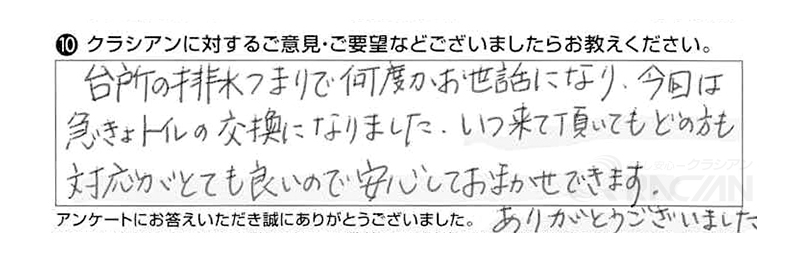 ⑩ クラシアンに対するご意見・ご要望などございましたらお教えください。
台所の排水つまりで何度かお世話になり、今回は
急きょトイレの交換になりました。いつ来て頂いてもどの方も
対応がとても良いので安心しておまかせできます。
アンケートにお答えいただき誠にありがとうございました。 ありがとうございました